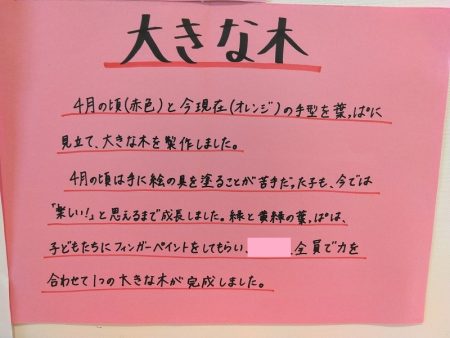 大きな木
4月の頃(赤色)と今現在(オレンジ)の手型を葉っぱに
見立て、大きな木を製作しました。
4月の頃は手に絵の具を塗ることが苦手だった子も、今では
「楽しい!」と思えるまで成長しました。緑と黄緑の葉っぱは、
子どもたちにフィンガーペイントをしてもらい、全員で力を
合わせて1つの大きな木が完成しました。